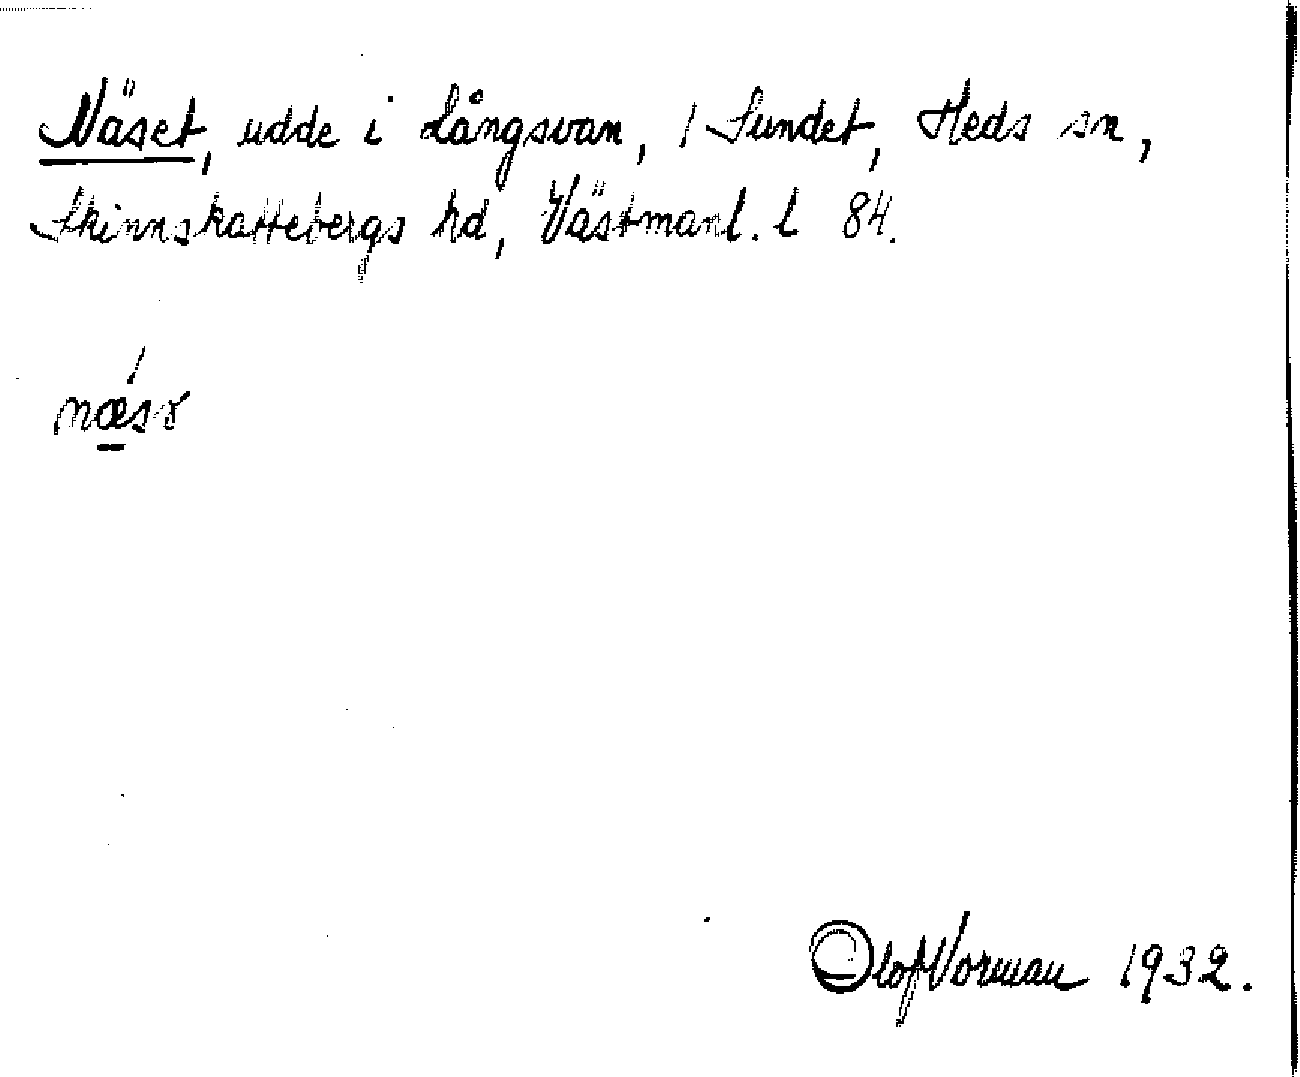 Näset, udde i Långsvan, / Sundet, Heds sn,
Skinnskattebergs hd, Västmanl. l 84.
Olof Norman 1932.